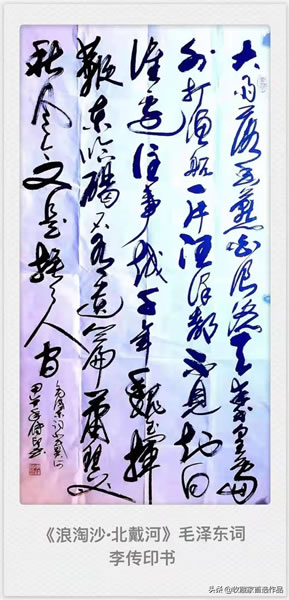 大雨落幽燕白浪滔天秦皇岛
外打渔船一片汪洋都不见知向
谁边往事越千年魏武挥
鞭东临碣石有遗篇萧瑟
秋风今又是换了人间
毛泽东词北戴河
《浪淘沙·北戴河》毛泽东词
李传印书
头条 @收藏家首选作品